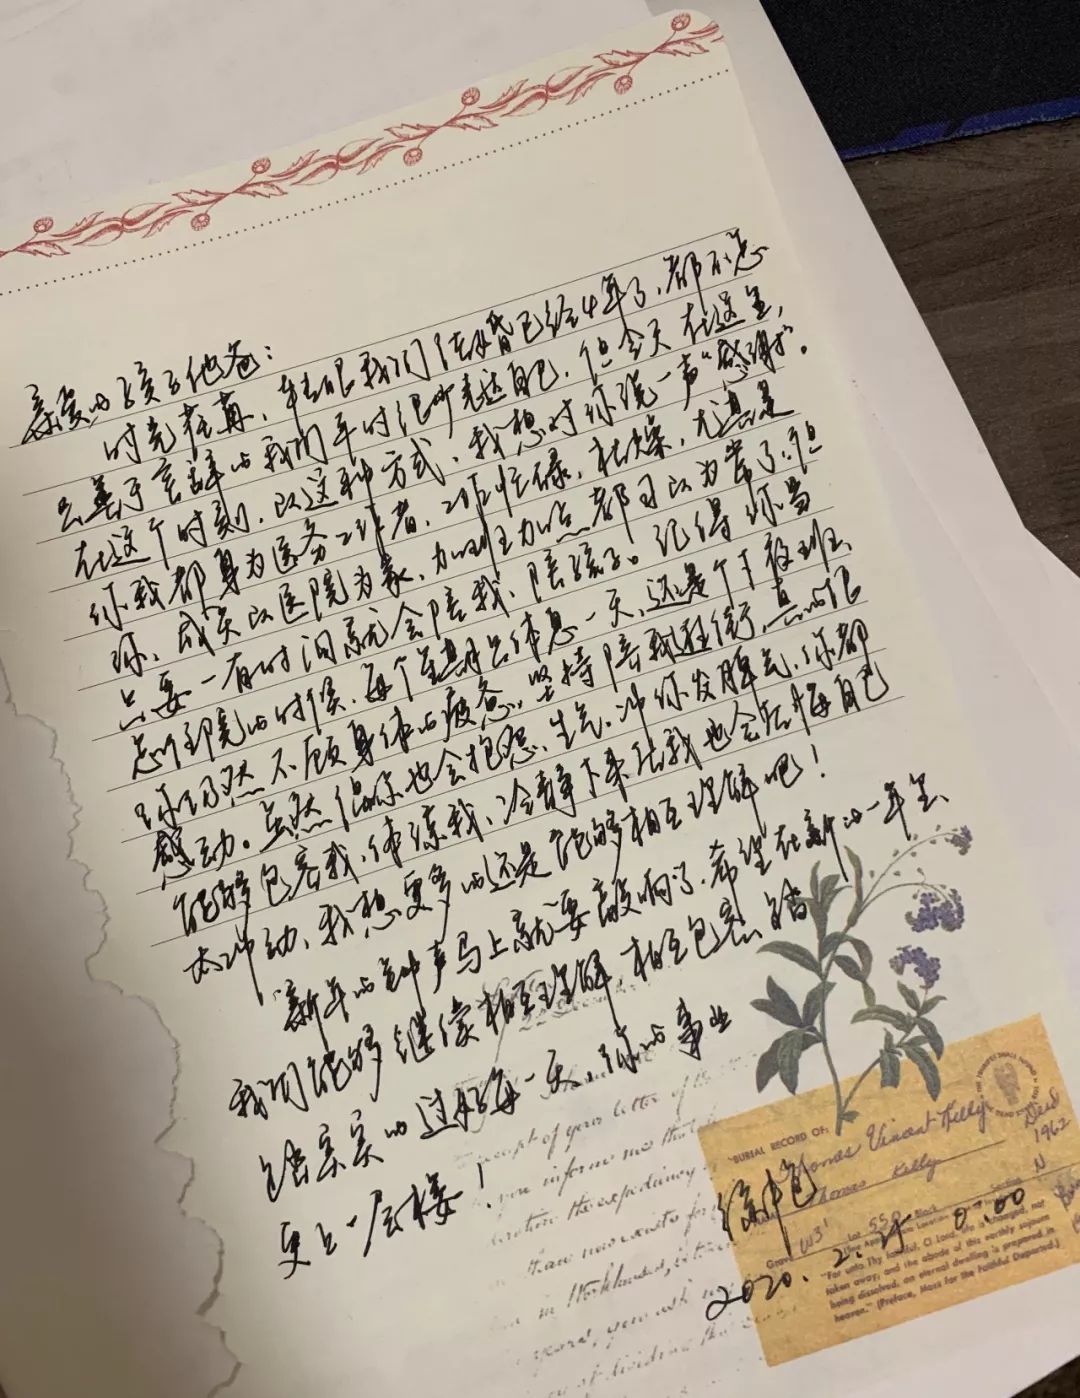 亲爱的孩子他爸：
时光荏苒，转眼我们结婚已经4年了，都不怎
么善于言辞的我们平时很少表达自己，但今天在这里，
在这个时刻，以这种方式，我想对你说一声“感谢”。
你我都身为医务工作者，工作忙碌、枯燥，尤其是
你，成天以医院为家，加班加点都习以为常了，但
只要一有时间就会陪我、陪孩子。记得你当
总的时候，每个星期只休息一天，还是个下夜班，
你仍然不顾身体的疲惫，坚持陪我逛街，真的很
感动。虽然偶尔也会抱怨、生气、冲你发脾气，你都
能够包容我，体谅我，冷静下来后我也会后悔自己
太冲动，我想更多的还是能够相互理解吧！
新年的钟声马上就要敲响了，希望在新的一年里，
我们能够继续相互理解，相互包容，踏
踏实实的过好每一天，你的事业
更上一层楼！
"BURIAL RECORD OF:
Thomas Vincent Kelly
Thomas Kelly
Died
1962
Grave
W31
Lot
550
Block
Section
N
2020.2.25 0:00
"For unto Thy faithful, O Lord, life is changed, not
taken away; and the abode of this earthly sojourn
being dissolved, an eternal dwelling is prepared in
heaven." (Preface, Mass for the Faithful Departed.)
receipt of your letter of the
you inform me that
the expediency
now exists for
in Workhouses,
years, you ask
dividing that